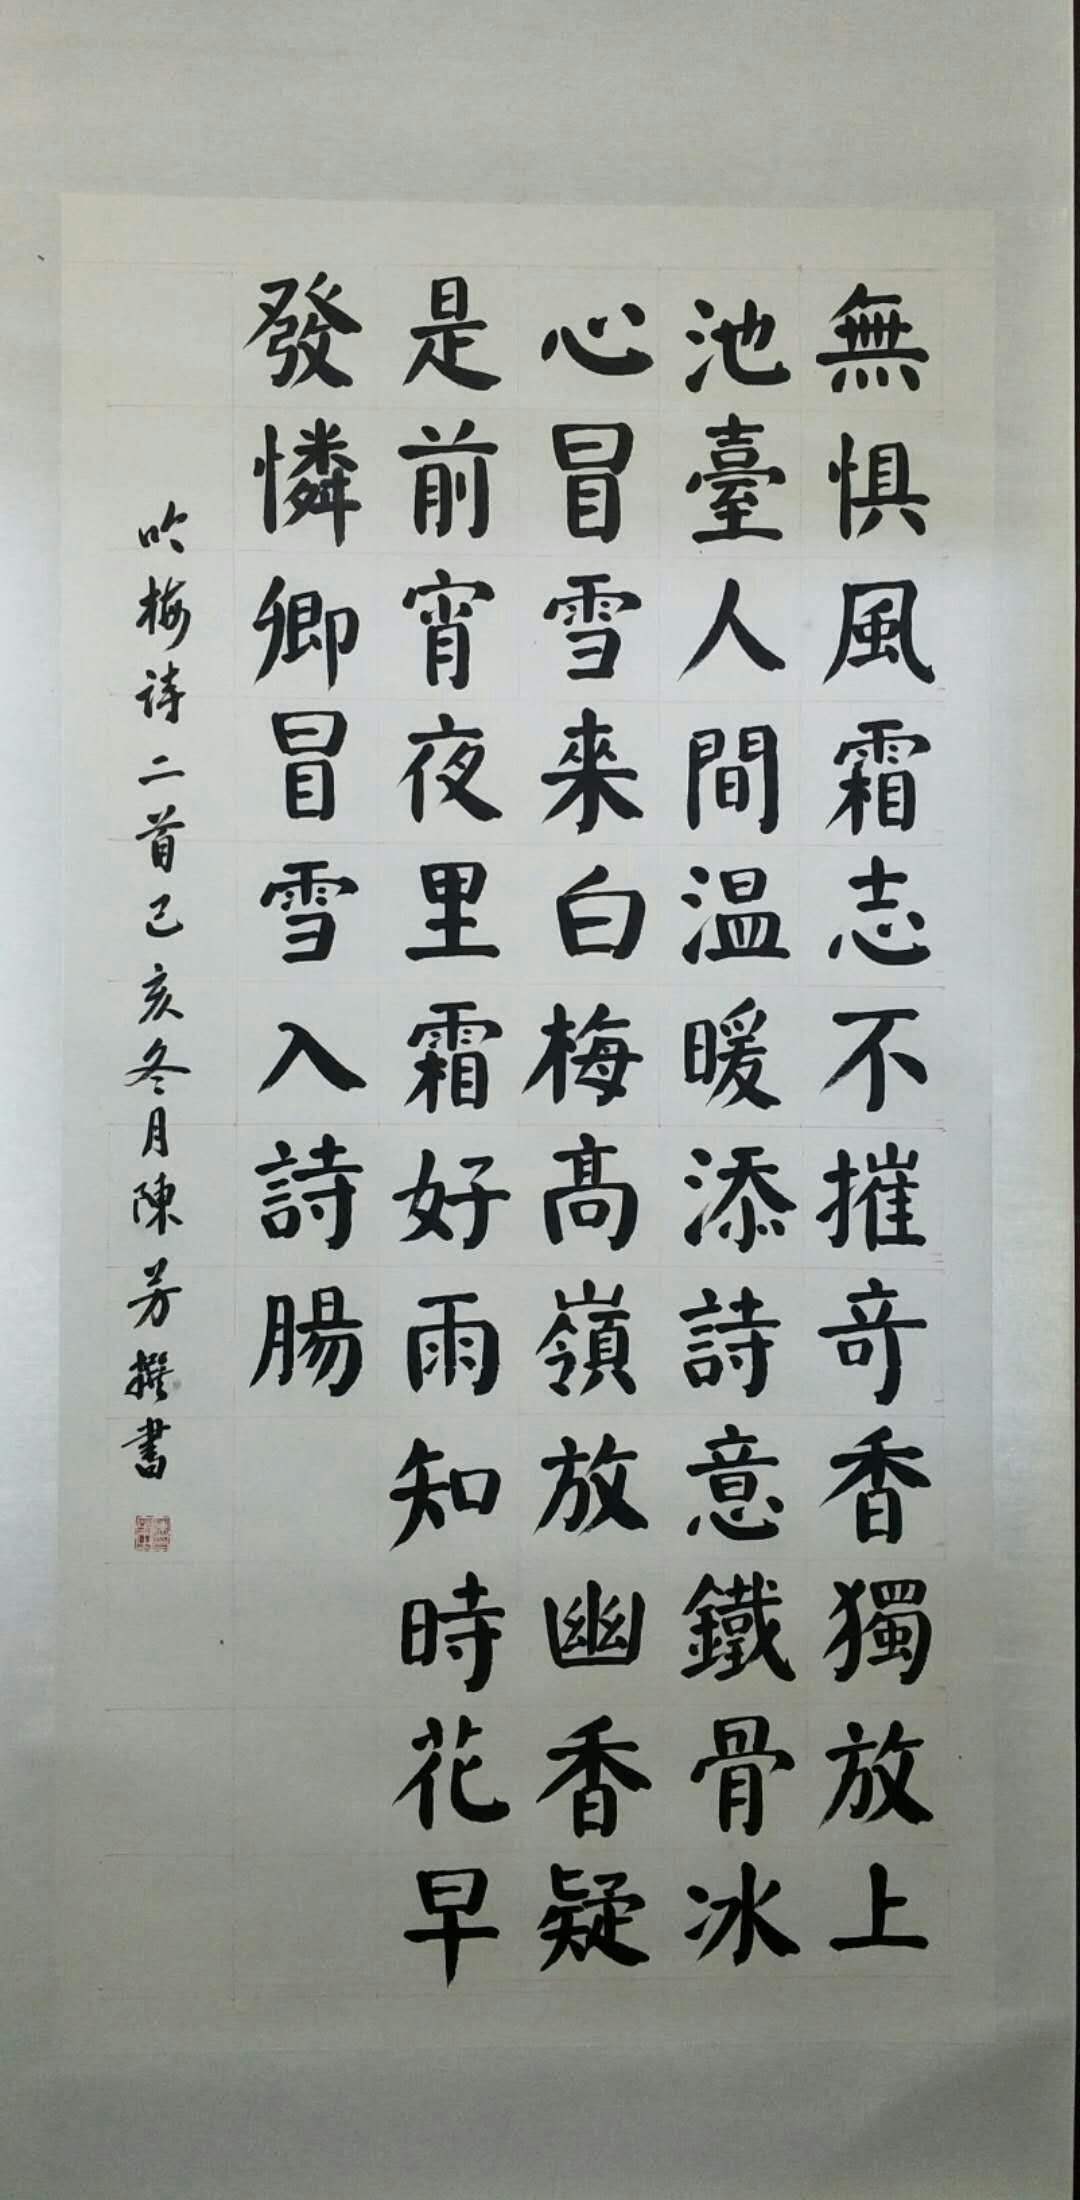 無惧風霜志不摧奇香獨放上
池臺人間温暖添詩意鐵骨冰
心冒雪来白梅高嶺放幽香疑
是前宵夜里霜好雨知時花早
發憐卿冒雪入詩腸
吟梅诗二首己亥冬月陳芳撰書